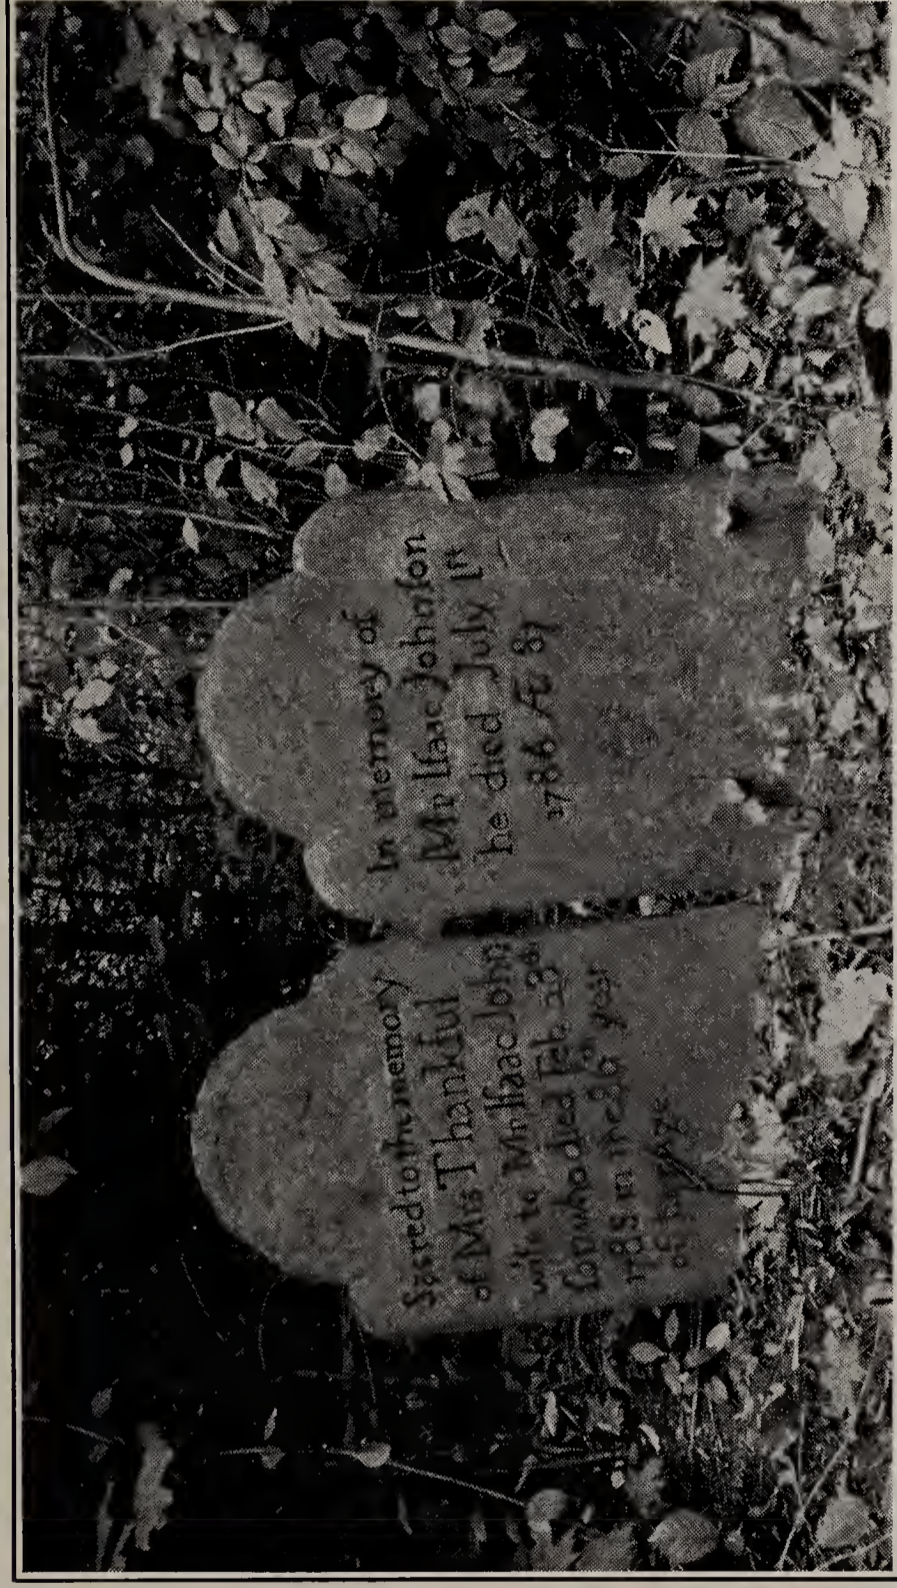 Sacred to the memory
of Mrs Thankful
wife to Mr Iſaac John
ſon who died Feb. 23ᵈ
in the 86 year
of her age
In memory of
Mr Iſaac Johnſon
he died July 1ſt
1786 Æ 87